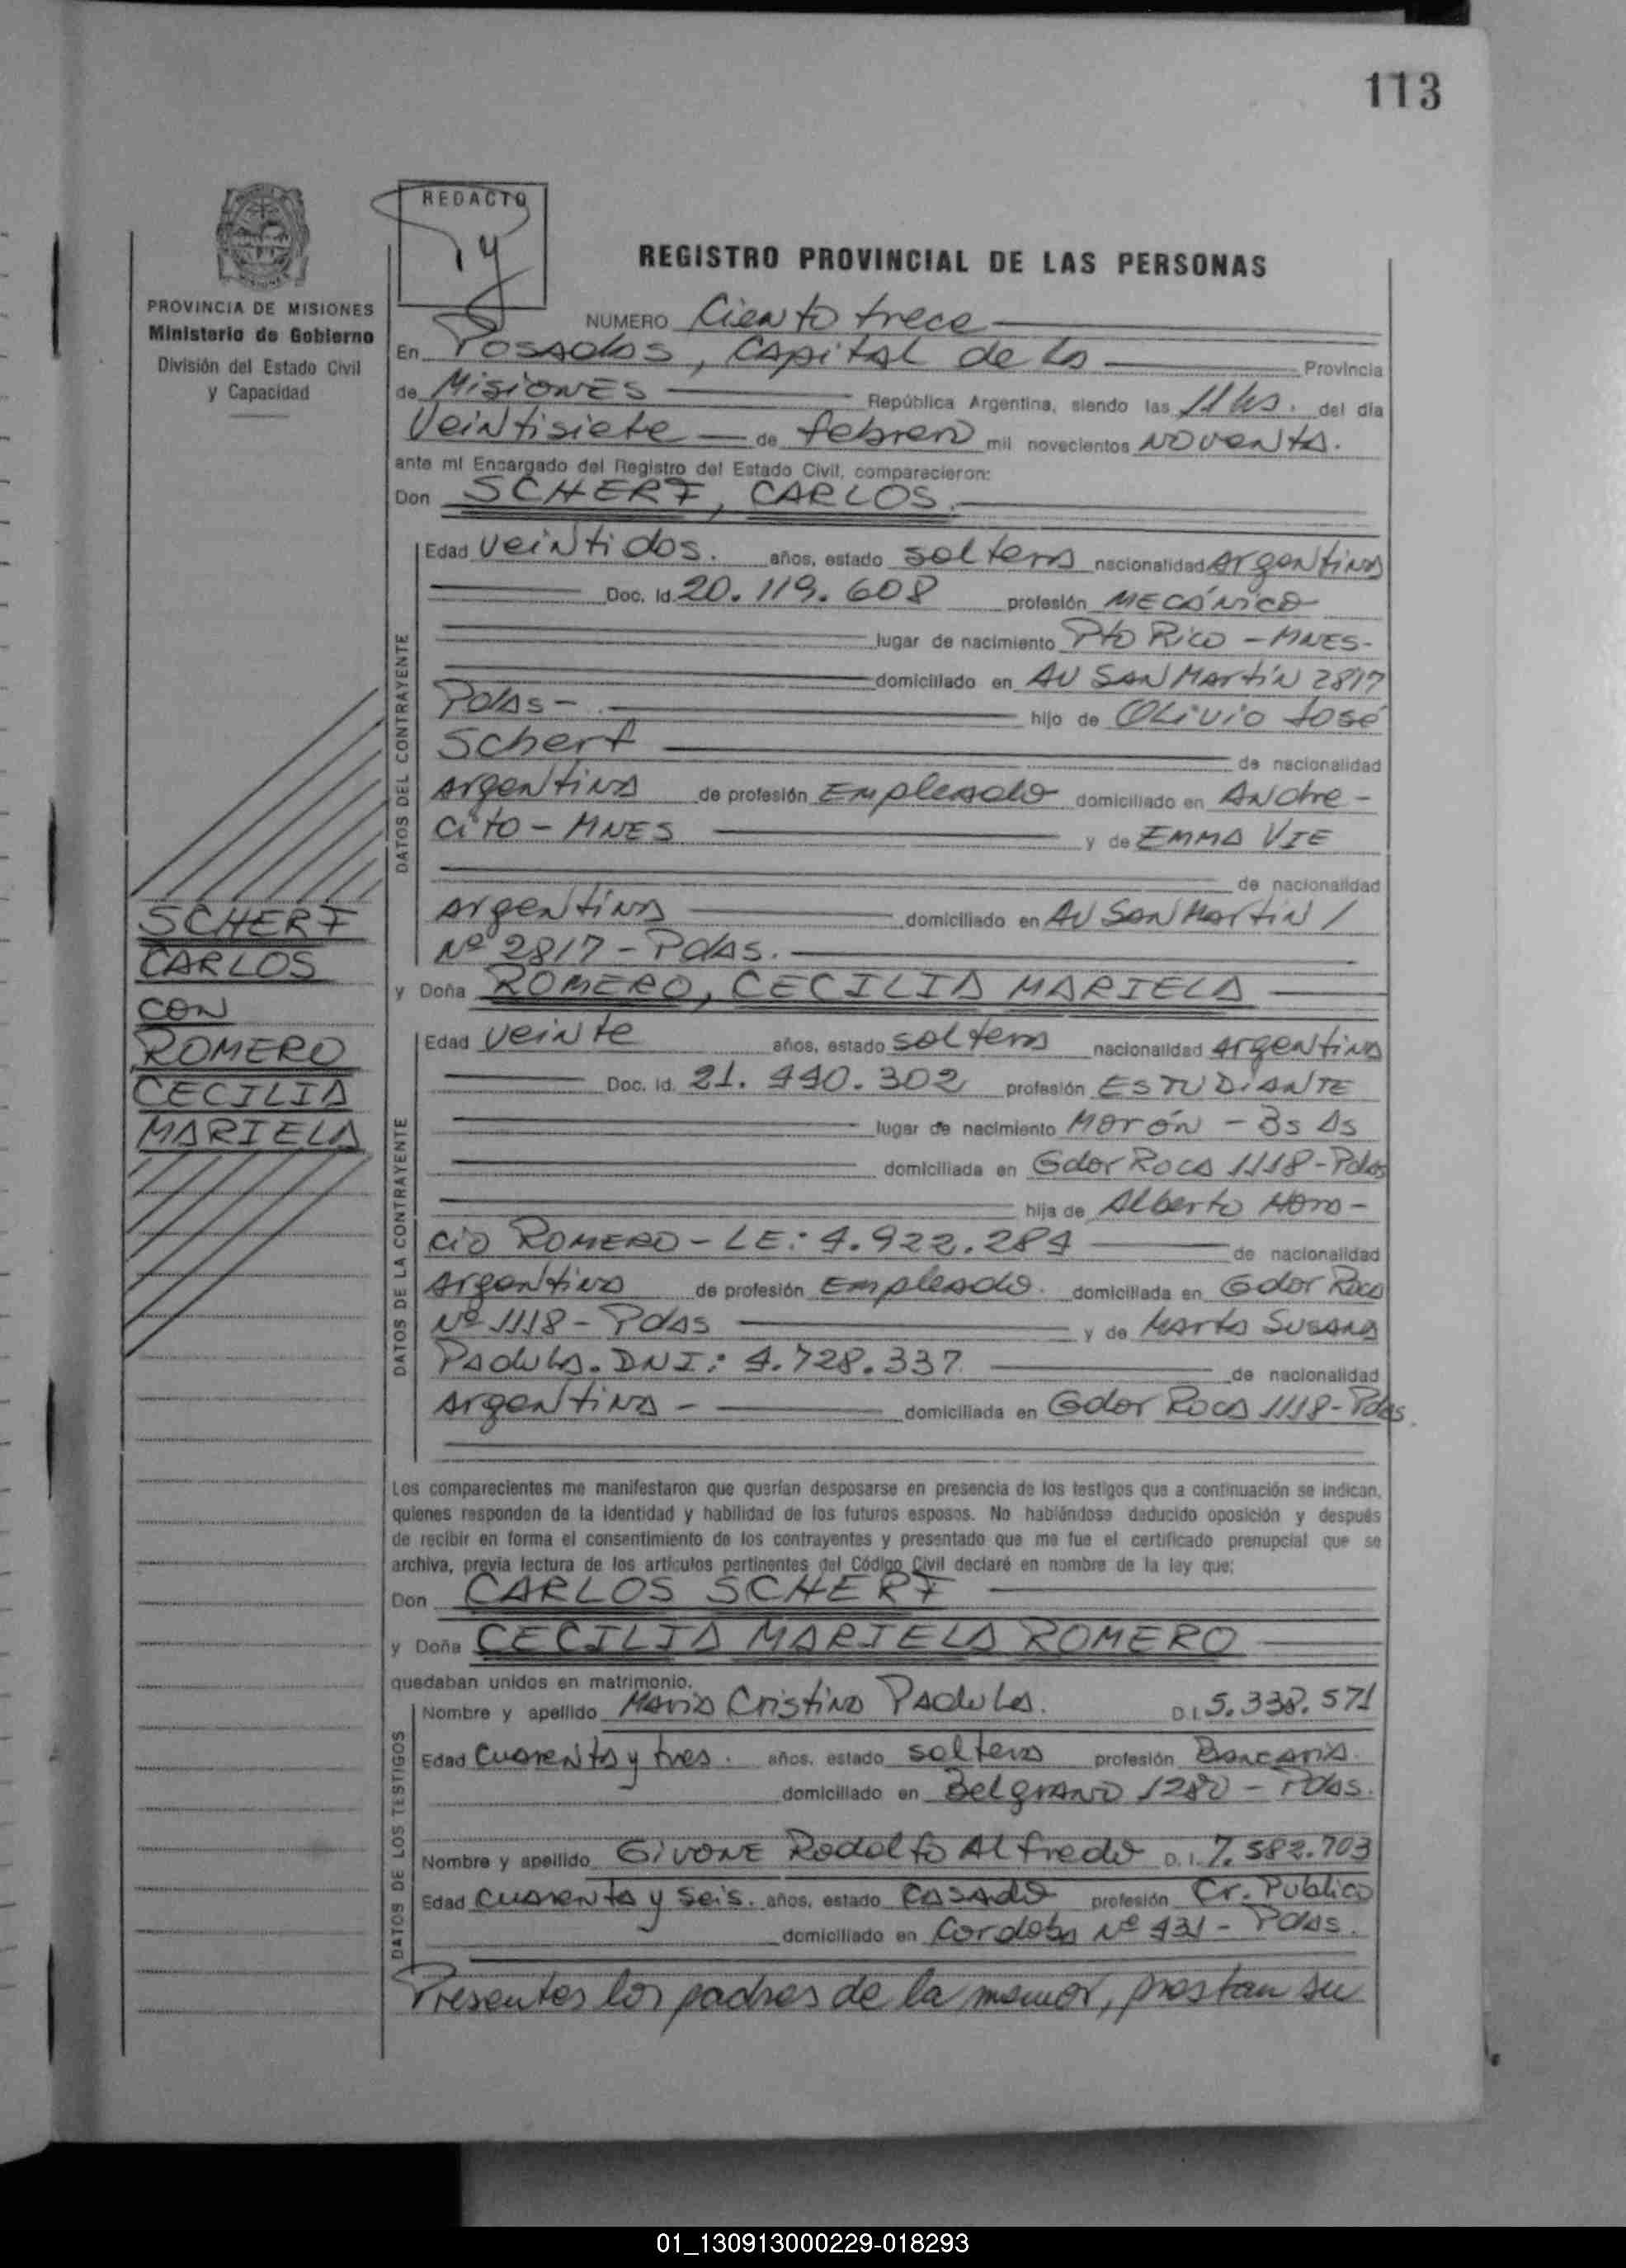 113
REDACTO
PROVINCIA DE MISIONES
Ministerio de Gobierno
División del Estado Civil
y Capacidad
REGISTRO PROVINCIAL DE LAS PERSONAS
NUMERO Ciento trece
En Posadas, Capital de la Provincia
de Misiones República Argentina, siendo las 11 hs. del día
Veintisiete de febrero mil novecientos NOVENTA.
ante mí Encargado del Registro del Estado Civil, comparecieron:
Don SCHERF, CARLOS.
DATOS DEL CONTRAYENTE
Edad Veintidos. años, estado soltero nacionalidad Argentina
Doc. Id. 20.119.608 profesión MECÁNICO
lugar de nacimiento Pto Rico - MNES-
domiciliado en AV SAN MARTÍN 2817
Pdas- hijo de OLIVIO José
Scherf de nacionalidad
Argentina de profesión Empleado domiciliado en Andre-
cito - MNES y de EMMA VIE
de nacionalidad
Argentina domiciliado en AV SAN MARTIN /
Nº 2817 - Pdas.
y Doña ROMERO, CECILIA MARIELA
DATOS DE LA CONTRAYENTE
Edad Veinte años, estado soltera nacionalidad Argentina
Doc. Id. 21.440.302 profesión ESTUDIANTE
lugar de nacimiento Morón - Bs As
domiciliada en Gdor Roca 1118-Pdas
hija de Alberto Hora-
cio ROMERO - LE: 4.922.284 de nacionalidad
Argentina de profesión Empleado. domiciliada en Gdor Roca
Nº 1118 - Pdas y de Marta Susana
Padula. DNI: 4.728.337. de nacionalidad
Argentina - domiciliada en Gdor Roca 1118-Pdas.
Los comparecientes me manifestaron que querían desposarse en presencia de los testigos que a continuación se indican,
quienes responden de la identidad y habilidad de los futuros esposos. No habiéndose deducido oposición y después
de recibir en forma el consentimiento de los contrayentes y presentado que me fue el certificado prenupcial que se
archiva, previa lectura de los artículos pertinentes del Código Civil declaré en nombre de la ley que;
Don CARLOS SCHERF
y Doña CECILIA MARIELA ROMERO
quedaban unidos en matrimonio.
DATOS DE LOS TESTIGOS
Nombre y apellido Maria Cristina Padula. D.I. 5.338.571
Edad Cuarenta y tres. años, estado soltera profesión Bancaria.
domiciliado en Belgrano 1280 - Pdas.
Nombre y apellido GIVONE Rodolfo Alfredo D.I. 7.582.703
Edad cuarenta y seis. años, estado casado profesión Cr. Publico
domiciliado en Cordoba Nº 431 - Pdas.
Presentes los padres de la menor, prestan su
SCHERF
CARLOS
CON
ROMERO
CECILIA
MARIELA
01_130913000229-018293